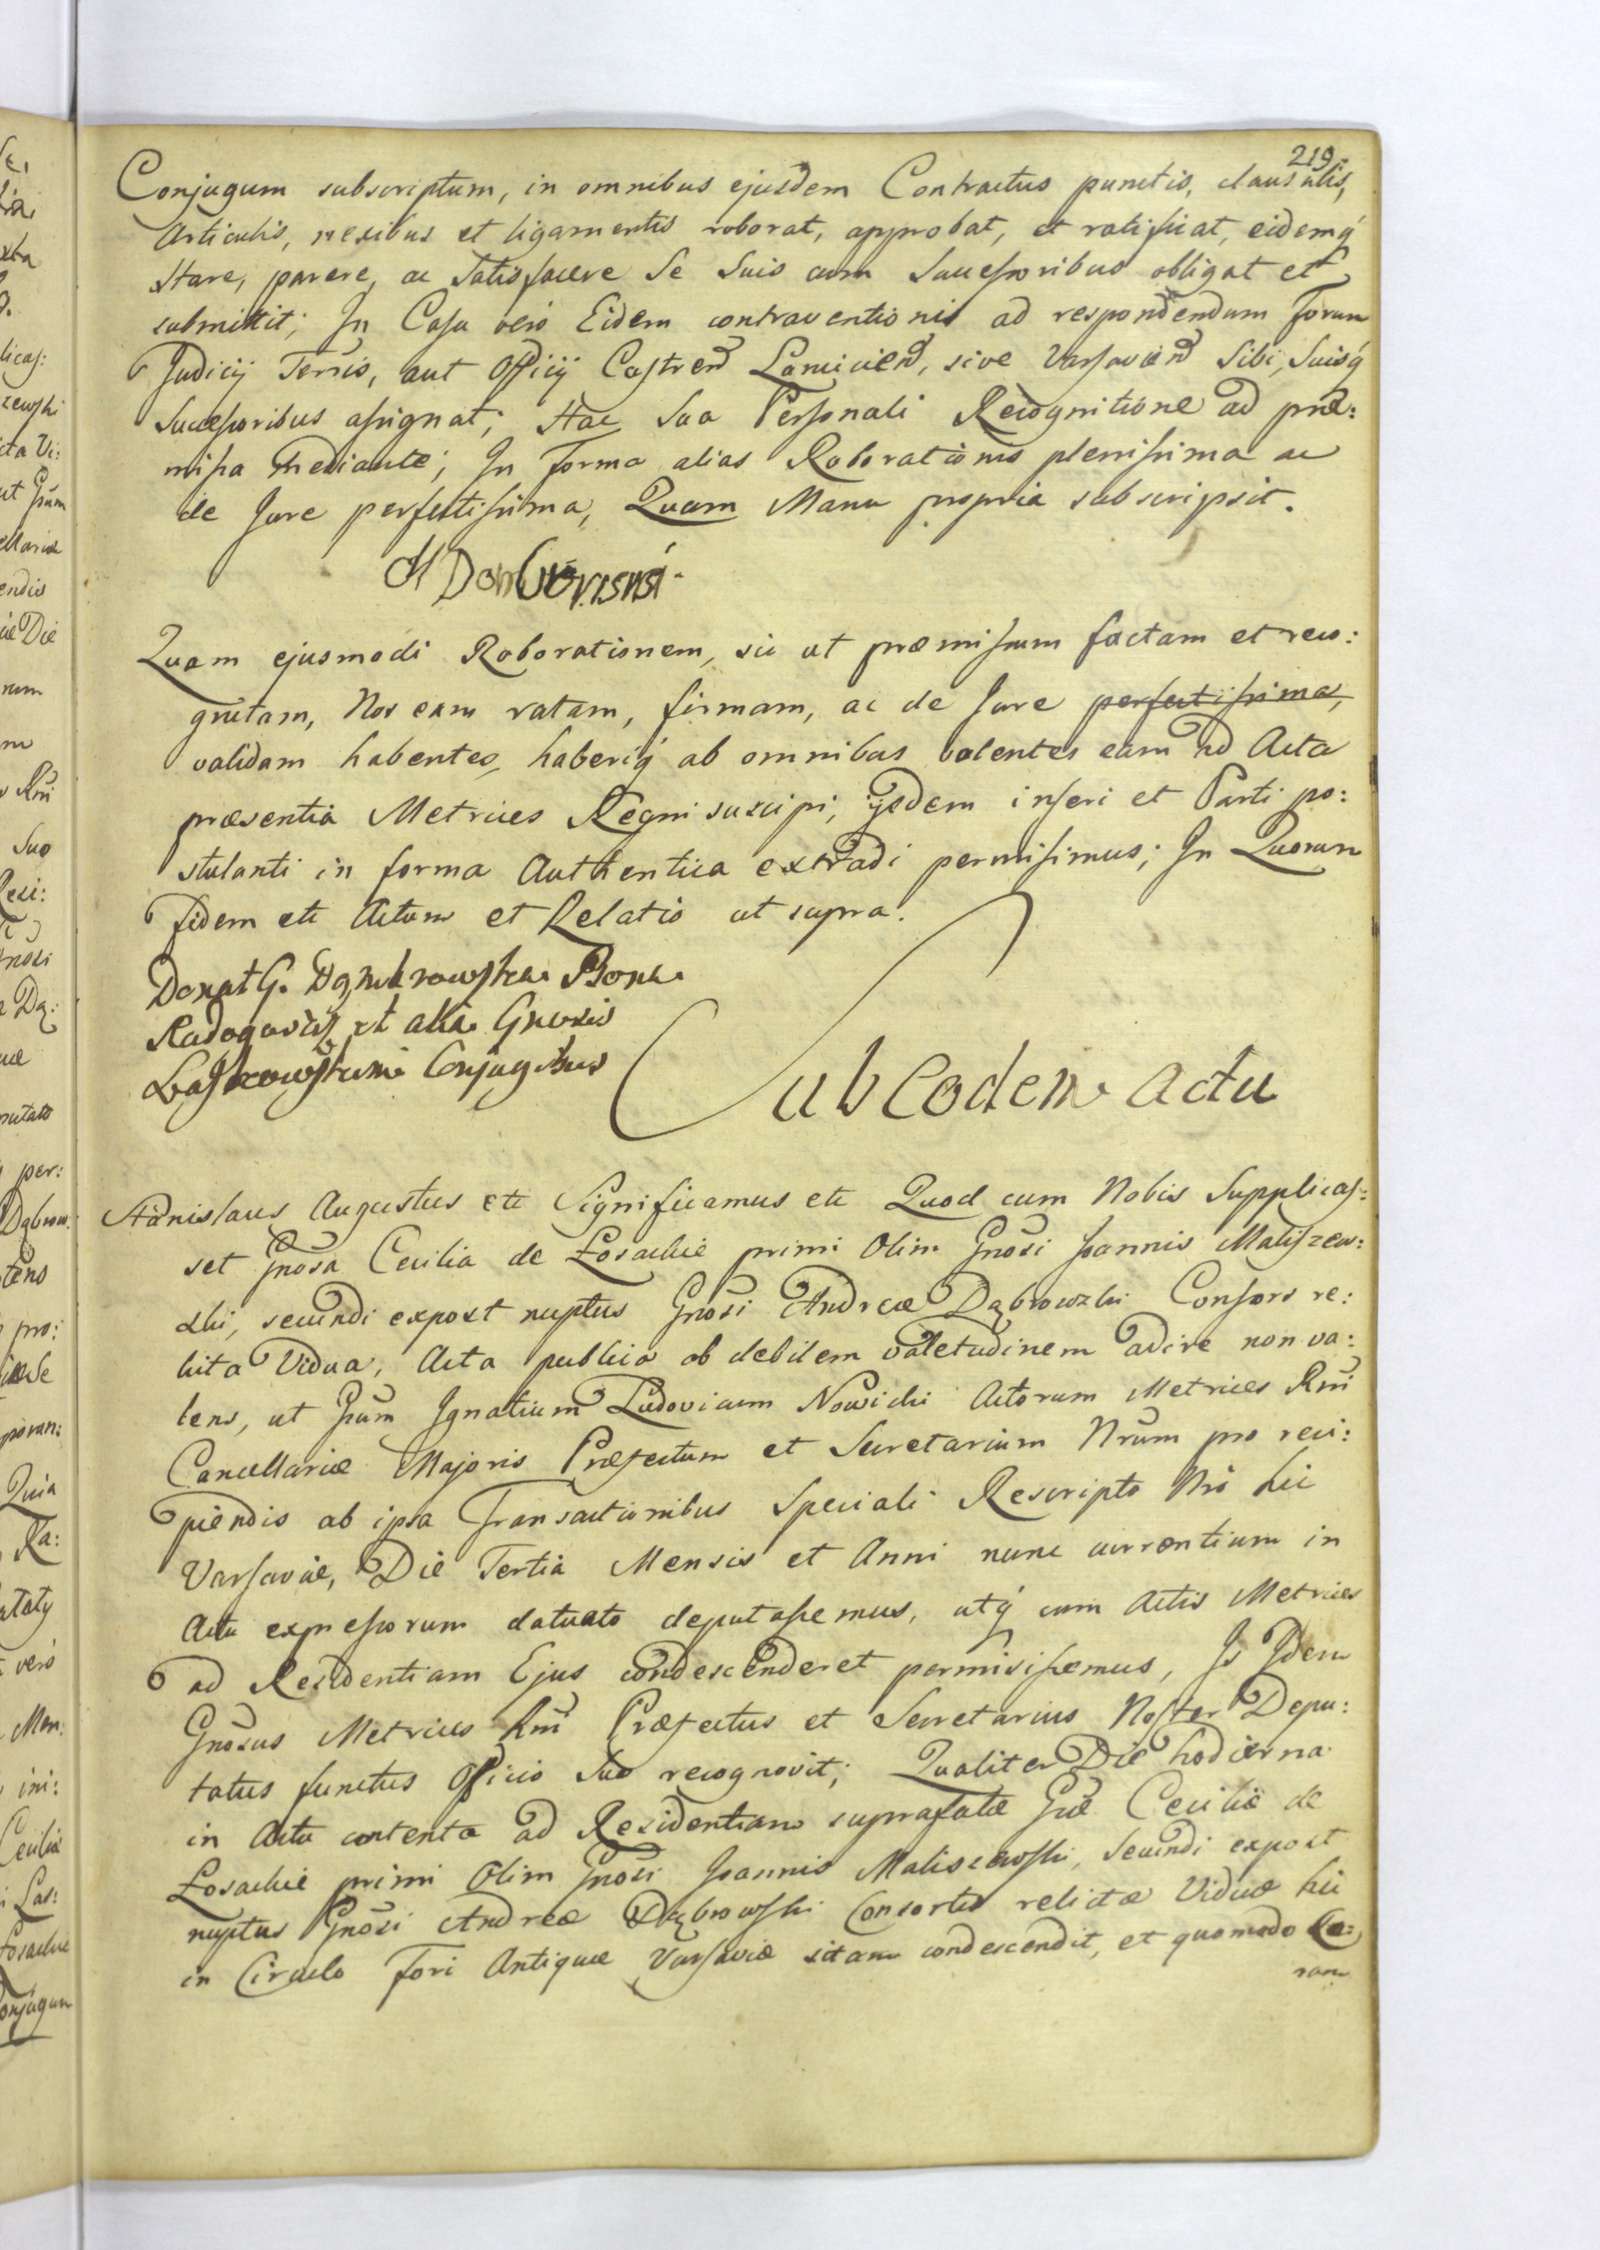 219.
Conjugum subscriptum, in omnibus ejusdem Contractus punctis, clausulis,
Articulis, nexibus et ligamentis roborat, approbat, et ratificat, eidemq́
stare, parere, ac satisfacere Se Suis cum Successoribus obligat et
submittit; In Casu verò Eidem contraventionis ad respondendum Forum
Judicij Terris, aut Officij Castren Lomicien, sive Varsavien Sibi, Suisq́
Successoribus assignat; Hac Sua Personali Recognitione ad præ:
missa mediante; In Forma alias Roborationis plenissima ac
de Jure perfectissima, Quam Manu propria subscripsit.
Quam ejusmodi Roborationem, sic ut præmissum factam et reco:
gnitam, Nos eam ratam, firmam, ac de Jure perfectissima,
validam habentes, haberiq́ ab omnibus volentes eam ad Acta
præsentia Metrices Regni suscipi, ijsdem inseri et Parti po:
stulanti in forma Authentica extradi permisimus; In Quorum
Fidem etc Actum et Relatio ut supra.
Donat G. Dąmbrowska Bona
Radogoszcz et alia Gnosis
Laskowskim Conjugibus
Sub Eodem Actu
Stanislaus Augustus etc Significamus etc Quod cum Nobis Supplicas:
set Gnosa Cecilia de Łosackie primi Olim Gnosi Joannis Maliszew:
ski, secundi expost nuptus Gnosi Andreæ Dąbrowski Consors re:
licta Vidua, Acta publica ob debilem valetudinem adire non va:
lens, ut Gsum Ignatium Ludovicum Nowicki Actorum Metrices Rni
Cancellariæ Majoris Præfectum et Secretarium Nrum pro reci:
piendis ab ipsa Transactionibus Speciali Rescripto Nro hic
Varsaviæ, Die Tertia Mensis et Anni nunc currentium in
Actu expressorum datuato deputassemus, utq́ cum Actis Metrices
ad Residentiam Ejus condescenderet permisissemus, Is Idem
Gnosus Metrices Rni Præfectus et Secretarius Noster Depu:
tatus functus Officio Suo recognovit; Qualiter Die hodierna
in Actu contenta ad Residentiam suprafatæ Gsæ Ceciliæ de
Łosackie primi Olim Gnosi Joannis Maliszewski, Secundi expost
nuptus Gnosi Andreæ Dąbrowski Consortis relictæ Viduæ hic
in Circulo Fori Antiquæ Varsaviæ sitam condescendit, et quomodo Co:
ram